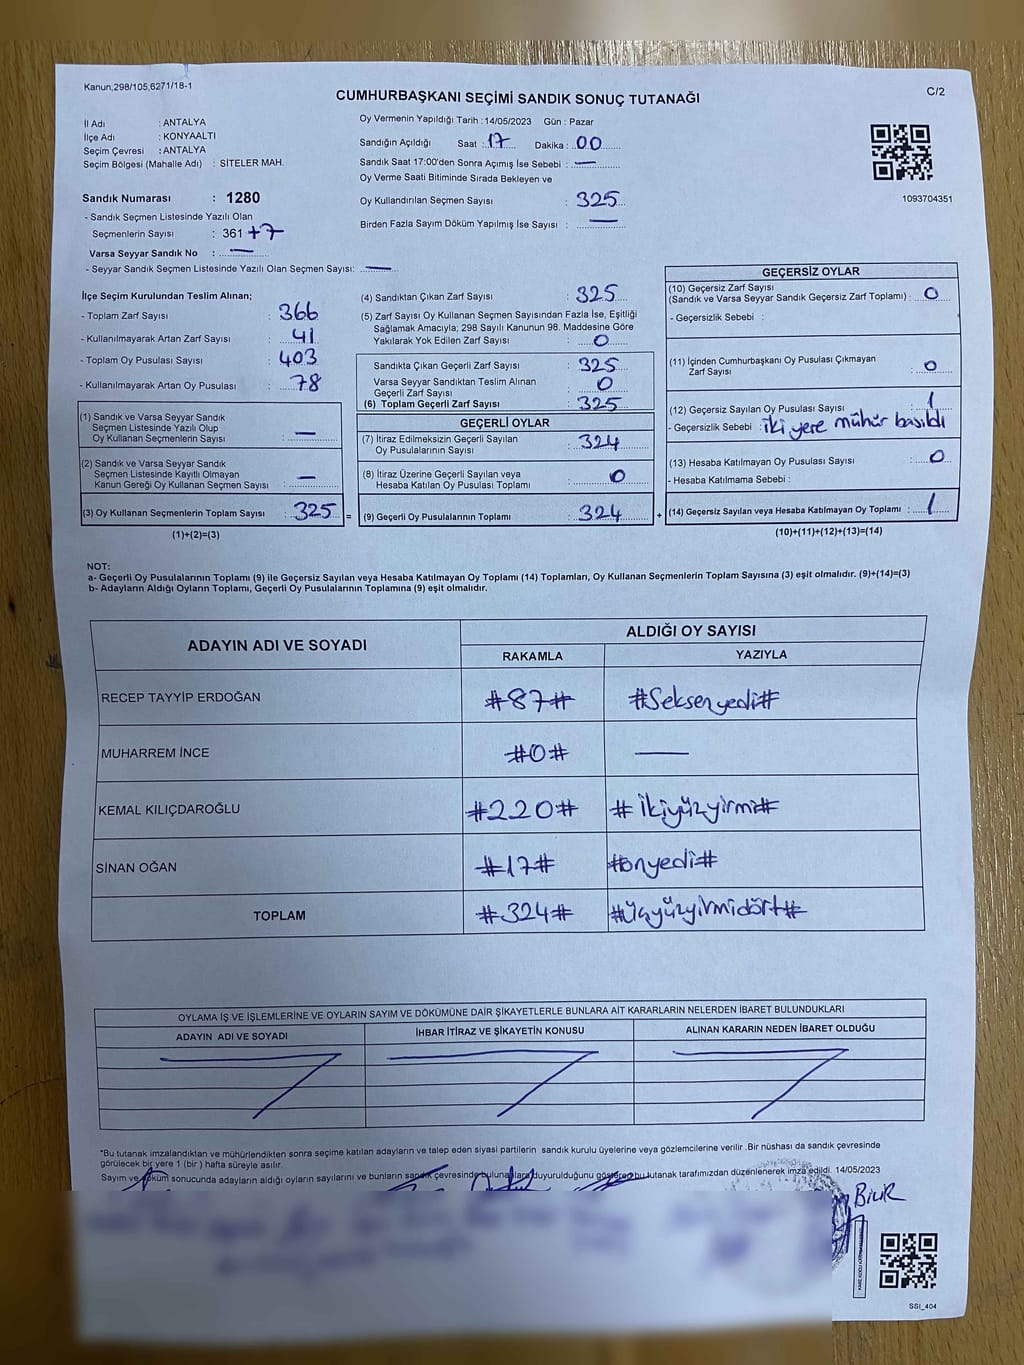 Kanun;298/105,6271/18-1
C/2
CUMHURBAŞKANI SEÇİMİ SANDIK SONUÇ TUTANAĞI
İl Adı : ANTALYA
İlçe Adı : KONYAALTI
Seçim Çevresi : ANTALYA
Seçim Bölgesi (Mahalle Adı) : SİTELER MAH.
Oy Vermenin Yapıldığı Tarih : 14/05/2023 Gün : Pazar
Sandığın Açıldığı Saat : 17 Dakika : 00
Sandık Saat 17:00'den Sonra Açımış İse Sebebi : —
Oy Verme Saati Bitiminde Sırada Bekleyen ve
Oy Kullandırılan Seçmen Sayısı : 325
Birden Fazla Sayım Döküm Yapılmış İse Sayısı : —
1093704351
Sandık Numarası : 1280
- Sandık Seçmen Listesinde Yazılı Olan
Seçmenlerin Sayısı : 361 +7
Varsa Seyyar Sandık No : —
- Seyyar Sandık Seçmen Listesinde Yazılı Olan Seçmen Sayısı: —
İlçe Seçim Kurulundan Teslim Alınan;
- Toplam Zarf Sayısı : 366
- Kullanılmayarak Artan Zarf Sayısı : 41
- Toplam Oy Pusulası Sayısı : 403
- Kullanılmayarak Artan Oy Pusulası : 78
(1) Sandık ve Varsa Seyyar Sandık
Seçmen Listesinde Yazılı Olup
Oy Kullanan Seçmenlerin Sayısı : —
(2) Sandık ve Varsa Seyyar Sandık
Seçmen Listesinde Kayıtlı Olmayan
Kanun Gereği Oy Kullanan Seçmen Sayısı : —
(3) Oy Kullanan Seçmenlerin Toplam Sayısı : 325 =
(1)+(2)=(3)
(4) Sandıktan Çıkan Zarf Sayısı : 325
(5) Zarf Sayısı Oy Kullanan Seçmen Sayısından Fazla İse, Eşitliği
Sağlamak Amacıyla; 298 Sayılı Kanunun 98. Maddesine Göre
Yakılarak Yok Edilen Zarf Sayısı : 0
Sandıkta Çıkan Geçerli Zarf Sayısı : 325
Varsa Seyyar Sandıktan Teslim Alınan
Geçerli Zarf Sayısı : 0
(6) Toplam Geçerli Zarf Sayısı : 325
GEÇERLİ OYLAR
(7) İtiraz Edilmeksizin Geçerli Sayılan
Oy Pusulalarının Sayısı : 324
(8) İtiraz Üzerine Geçerli Sayılan veya
Hesaba Katılan Oy Pusulası Toplamı : 0
(9) Geçerli Oy Pusulalarının Toplamı : 324 +
GEÇERSİZ OYLAR
(10) Geçersiz Zarf Sayısı
(Sandık ve Varsa Seyyar Sandık Geçersiz Zarf Toplamı) : 0
- Geçersizlik Sebebi :
(11) İçinden Cumhurbaşkanı Oy Pusulası Çıkmayan
Zarf Sayısı : 0
(12) Geçersiz Sayılan Oy Pusulası Sayısı : 1
- Geçersizlik Sebebi : iki yere mühür basıldı
(13) Hesaba Katılmayan Oy Pusulası Sayısı : 0
- Hesaba Katılmama Sebebi :
(14) Geçersiz Sayılan veya Hesaba Katılmayan Oy Toplamı : 1
(10)+(11)+(12)+(13)=(14)
NOT:
a- Geçerli Oy Pusulalarının Toplamı (9) ile Geçersiz Sayılan veya Hesaba Katılmayan Oy Toplamı (14) Toplamları, Oy Kullanan Seçmenlerin Toplam Sayısına (3) eşit olmalıdır. (9)+(14)=(3)
b- Adayların Aldığı Oyların Toplamı, Geçerli Oy Pusulalarının Toplamına (9) eşit olmalıdır.
ADAYIN ADI VE SOYADI ALDIĞI OY SAYISI
RAKAMLA YAZIYLA
RECEP TAYYİP ERDOĞAN #87# #Seksenyedi#
MUHARREM İNCE #0# —
KEMAL KILIÇDAROĞLU #220# #ikiyüzyirmi#
SİNAN OĞAN #17# #onyedi#
TOPLAM #324# #üçyüzyirmidört#
OYLAMA İŞ VE İŞLEMLERİNE VE OYLARIN SAYIM VE DÖKÜMÜNE DAİR ŞİKAYETLERLE BUNLARA AİT KARARLARIN NELERDEN İBARET BULUNDUKLARI
ADAYIN ADI VE SOYADI İHBAR İTİRAZ VE ŞİKAYETİN KONUSU ALINAN KARARIN NEDEN İBARET OLDUĞU
*Bu tutanak imzalandıktan ve mühürlendikten sonra seçime katılan adayların ve talep eden siyasi partilerin sandık kurulu üyelerine veya gözlemcilerine verilir .Bir nüshası da sandık çevresinde
görülecek bir yere 1 (bir ) hafta süreyle asılır.
Sayım ve döküm sonucunda adayların aldığı oyların sayılarını ve bunların sandık çevresinde bulunanlara duyurulduğunu gösteren bu tutanak tarafımızdan düzenlenerek imza edildi. 14/05/2023
BİLİR
SSI_404